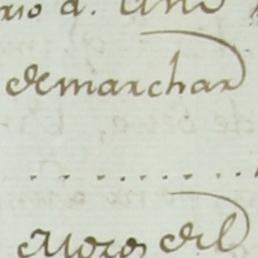 rio d. Uno
demarchar
. . . . . . . . . .
Moros del